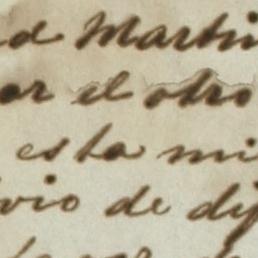 d Martin
or el otro
esta mi
vio de dij